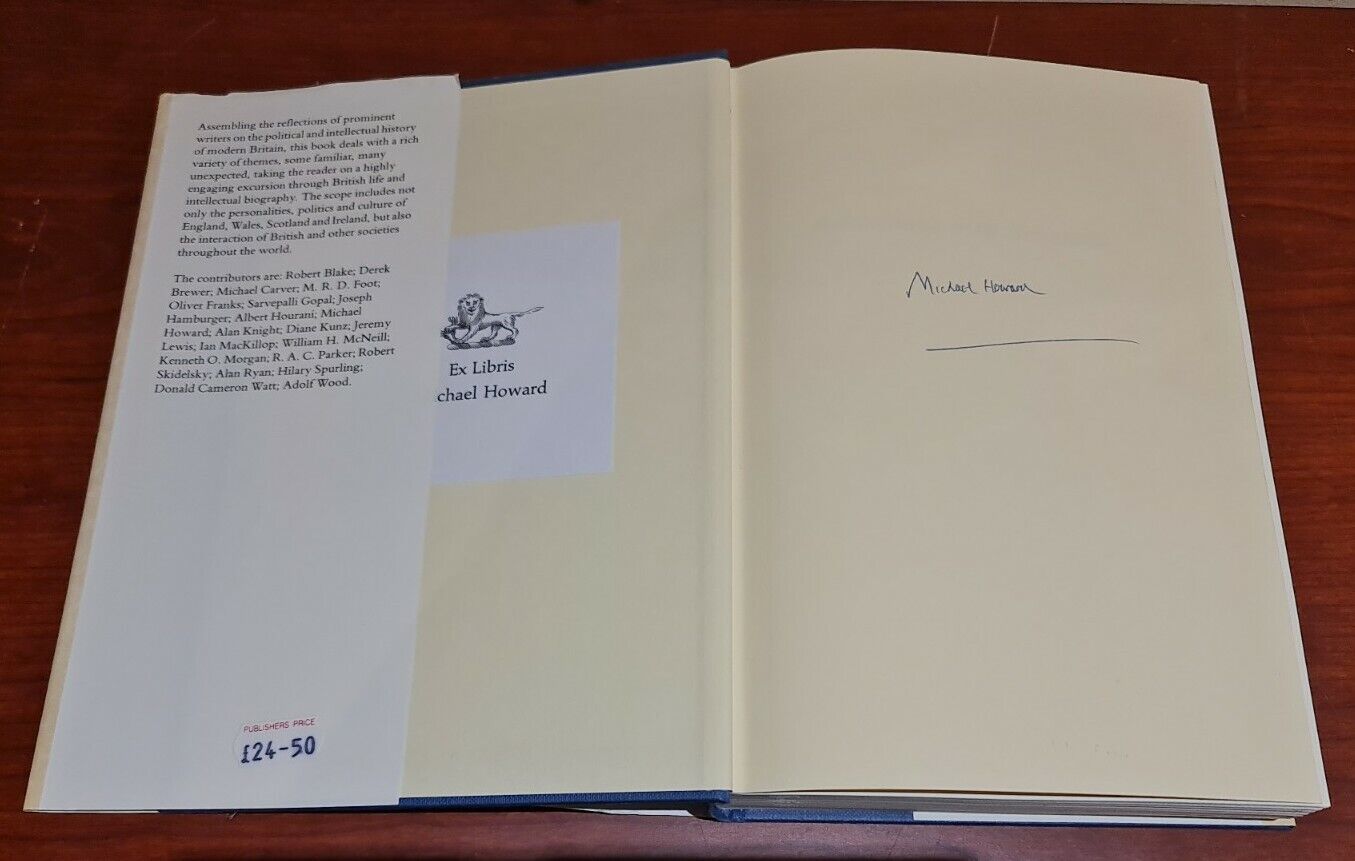 Assembling the reflections of prominent
writers on the political and intellectual history
of modern Britain, this book deals with a rich
variety of themes, some familiar, many
unexpected, taking the reader on a highly
engaging excursion through British life and
intellectual biography. The scope includes not
only the personalities, politics and culture of
England, Wales, Scotland and Ireland, but also
the interaction of British and other societies
throughout the world.
The contributors are: Robert Blake; Derek
Brewer; Michael Carver; M. R. D. Foot;
Oliver Franks; Sarvepalli Gopal; Joseph
Hamburger; Albert Hourani; Michael
Howard; Alan Knight; Diane Kunz; Jeremy
Lewis; Ian MacKillop; William H. McNeill;
Kenneth O. Morgan; R. A. C. Parker; Robert
Skidelsky; Alan Ryan; Hilary Spurling;
Donald Cameron Watt; Adolf Wood.
PUBLISHERS PRICE
£24-50
Ex Libris
chael Howard
Michael Howard